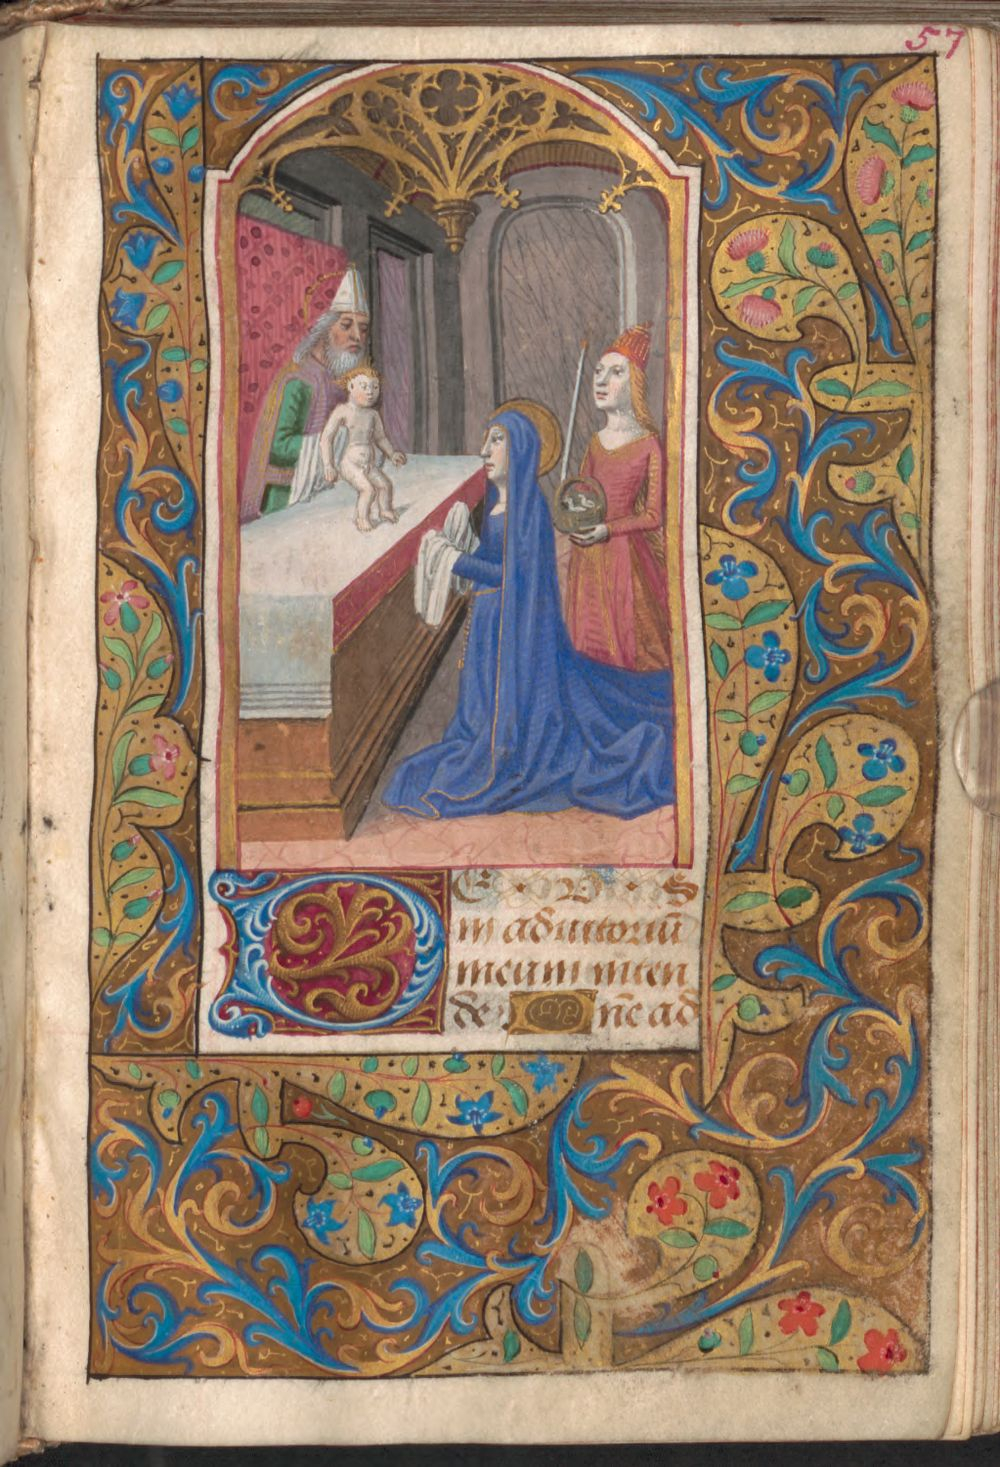 57
DEUS
in adiutoriū
meum inten
de. Dñe ad